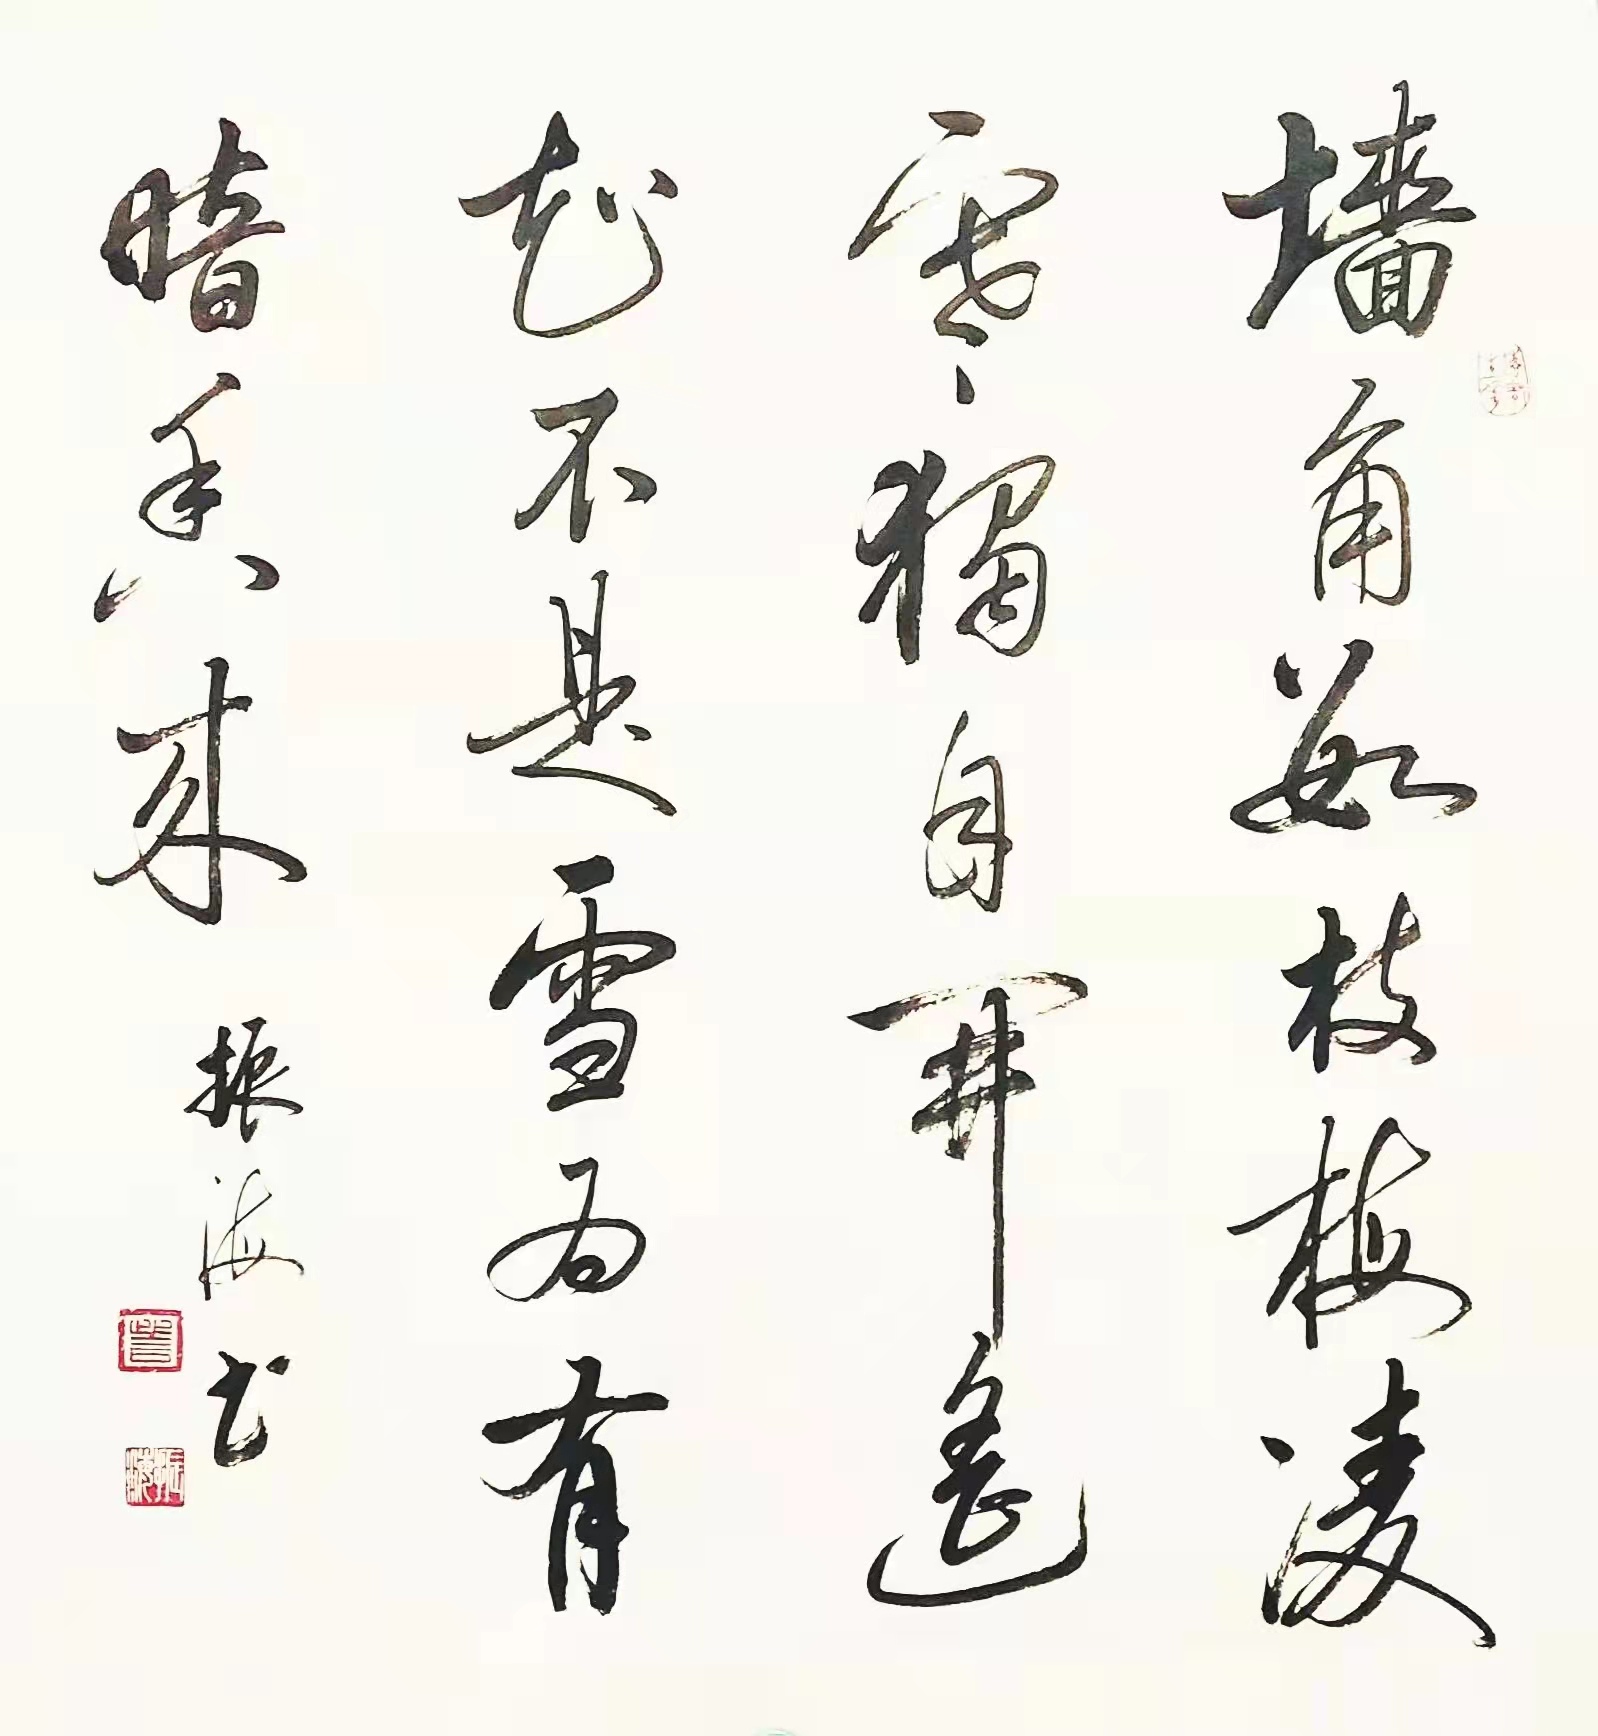 墙角数枝梅凌
寒獨自開遙
知不是雪为有
暗香来
振海书